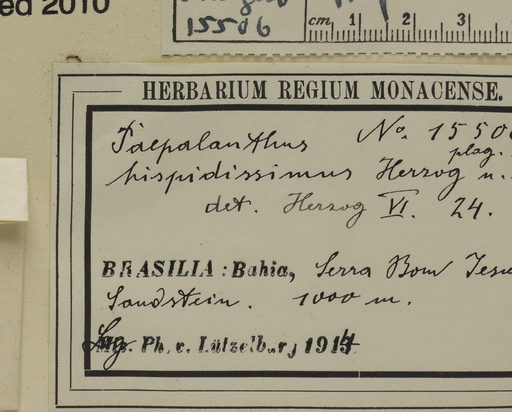 ed 2010
15506
cm 1 2 3
HERBARIUM REGIUM MONACENSE.
Paepalanthus No. 1550
plag.
hispidissimus Herzog n.
det. Herzog VI. 24.
BRASILIA: Bahia, Serra Bom Jesu
Sandstein. 1000 m.
Lg. Ph. v. Lützelburg 1914